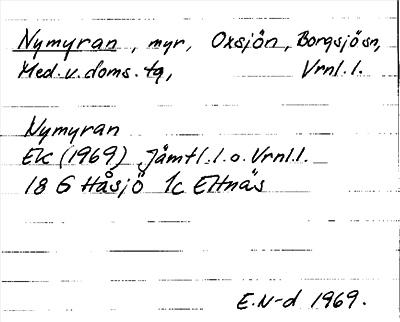 Nymyran, myr, Oxsjön, Borgsjösn,
Med.v.doms.tg, Vrnl.l.
Nymyran
Ek (1969) Jämtl.l.o.Vrnl.l.
18 G Håsjö 1c Eltnäs
E.N-d 1969.